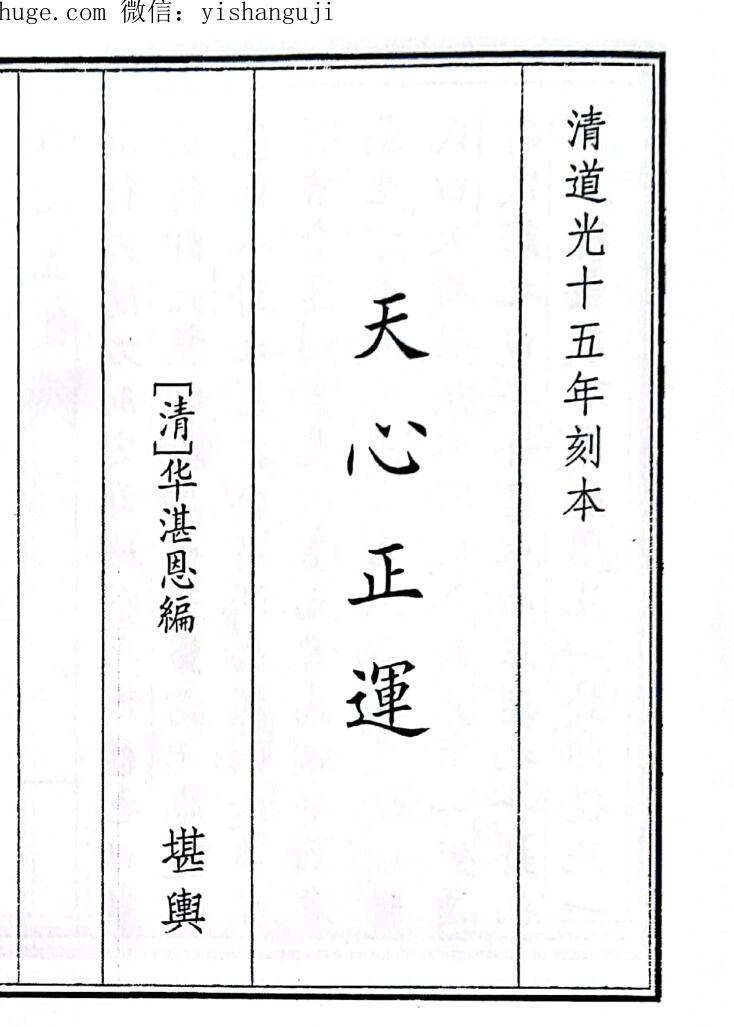 huge.com 微信：yishanguji
清道光十五年刻本
天心正運
[清]华湛恩編
堪輿